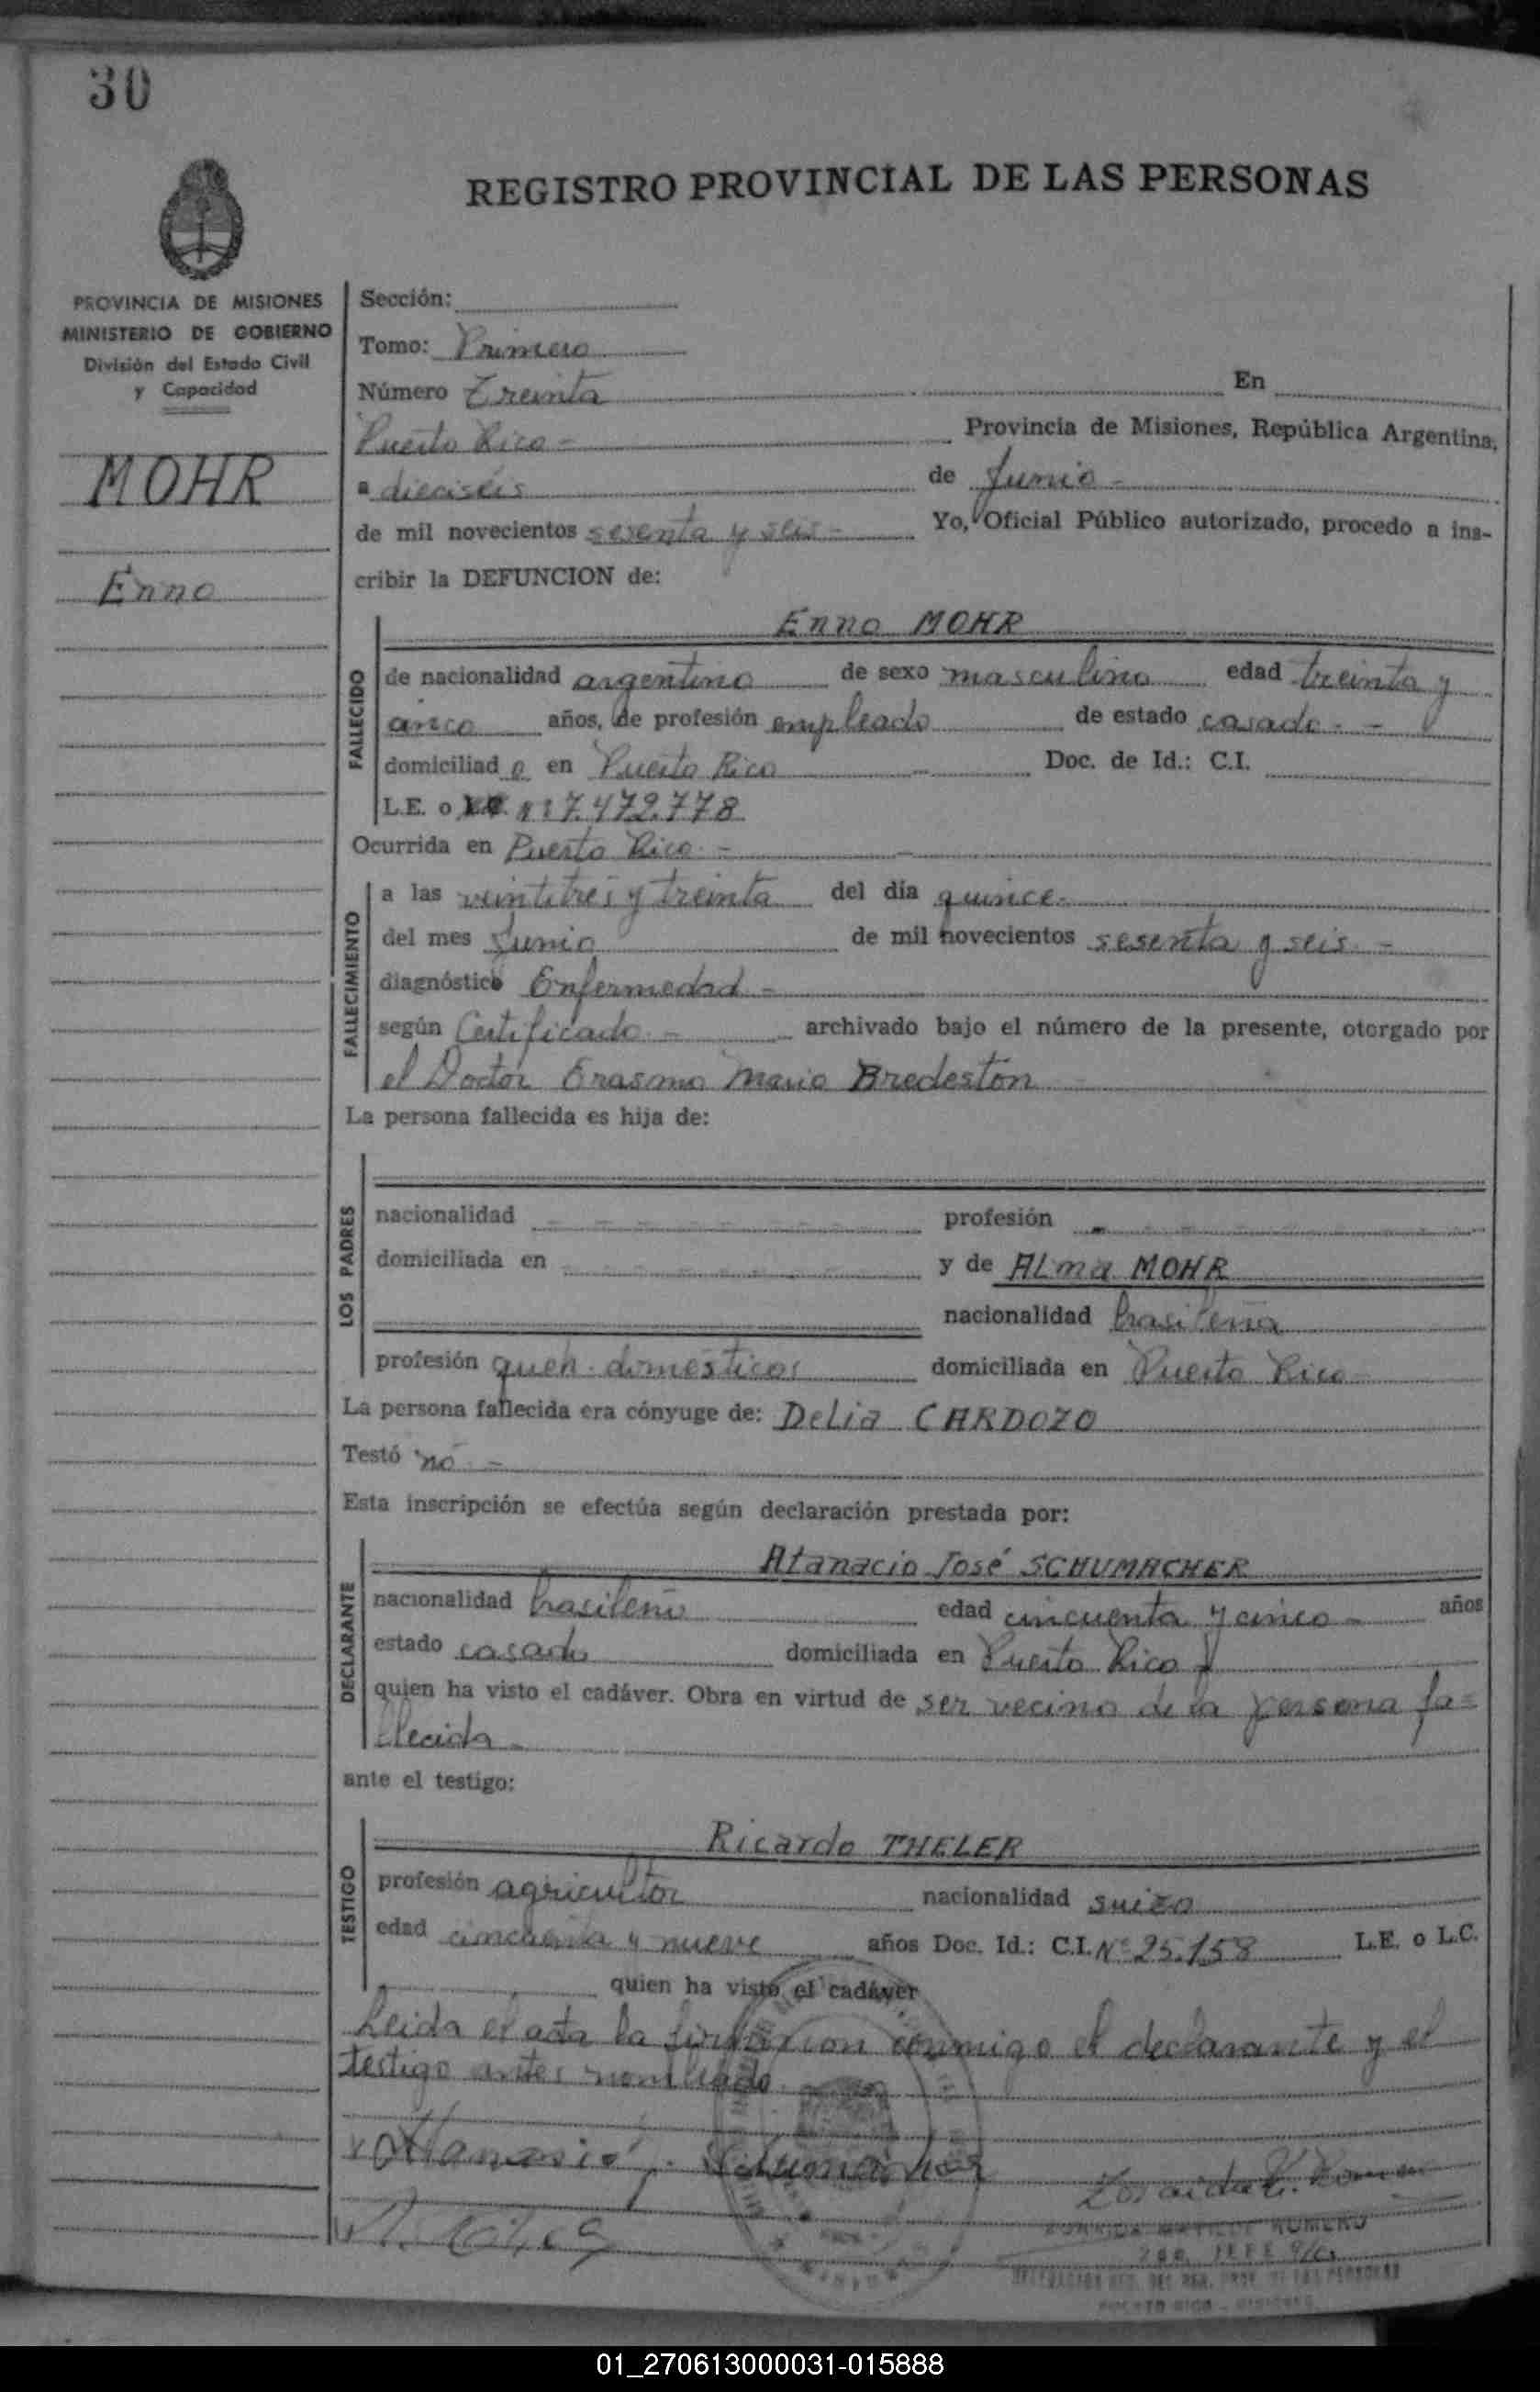 30
REGISTRO PROVINCIAL DE LAS PERSONAS
PROVINCIA DE MISIONES
MINISTERIO DE GOBIERNO
División del Estado Civil
y Capacidad
MOHR
Enno
Sección:
Tomo: Primero
Número Treinta En
Puerto Rico - Provincia de Misiones, República Argentina,
a dieciséis de Junio -
de mil novecientos sesenta y seis - Yo, Oficial Público autorizado, procedo a ins-
cribir la DEFUNCION de:
Enno MOHR
FALLECIDO
de nacionalidad argentino de sexo masculino edad treinta y
cinco años, de profesión empleado de estado casado. -
domiciliad o en Puerto Rico Doc. de Id.: C.I.
L.E. o Nº 7.472.778
Ocurrida en Puerto Rico. -
FALLECIMIENTO
a las veintitrés y treinta del día quince.
del mes Junio de mil novecientos sesenta y seis. -
diagnóstico Enfermedad -
según Certificado. - archivado bajo el número de la presente, otorgado por
el Doctor Erasmo Mario Bredeston
La persona fallecida es hija de:
LOS PADRES
nacionalidad - - - - - - - profesión - - - - - - -
domiciliada en - - - - - - - y de ALma MOHR
nacionalidad brasileña
profesión queh. domésticos domiciliada en Puerto Rico
La persona fallecida era cónyuge de: DeLia CARDOZO
Testó no. -
Esta inscripción se efectúa según declaración prestada por:
Atanacio José SCHUMACHER
DECLARANTE
nacionalidad brasileño edad cincuenta y cinco - años
estado casado domiciliada en Puerto Rico
quien ha visto el cadáver. Obra en virtud de ser vecino de la persona fa=
llecida -
ante el testigo:
Ricardo THELER
TESTIGO
profesión agricultor nacionalidad suizo
edad cincuenta y nueve años Doc. Id.: C.I. Nº 25.158 L.E. o L.C.
quien ha visto el cadáver
Leida el acta la firmaron conmigo el declarante y el
testigo antes nombrado.
Schumacher
MATILDE ROMERO
JEFE
PUERTO RICO - MISIONES
01_270613000031-015888